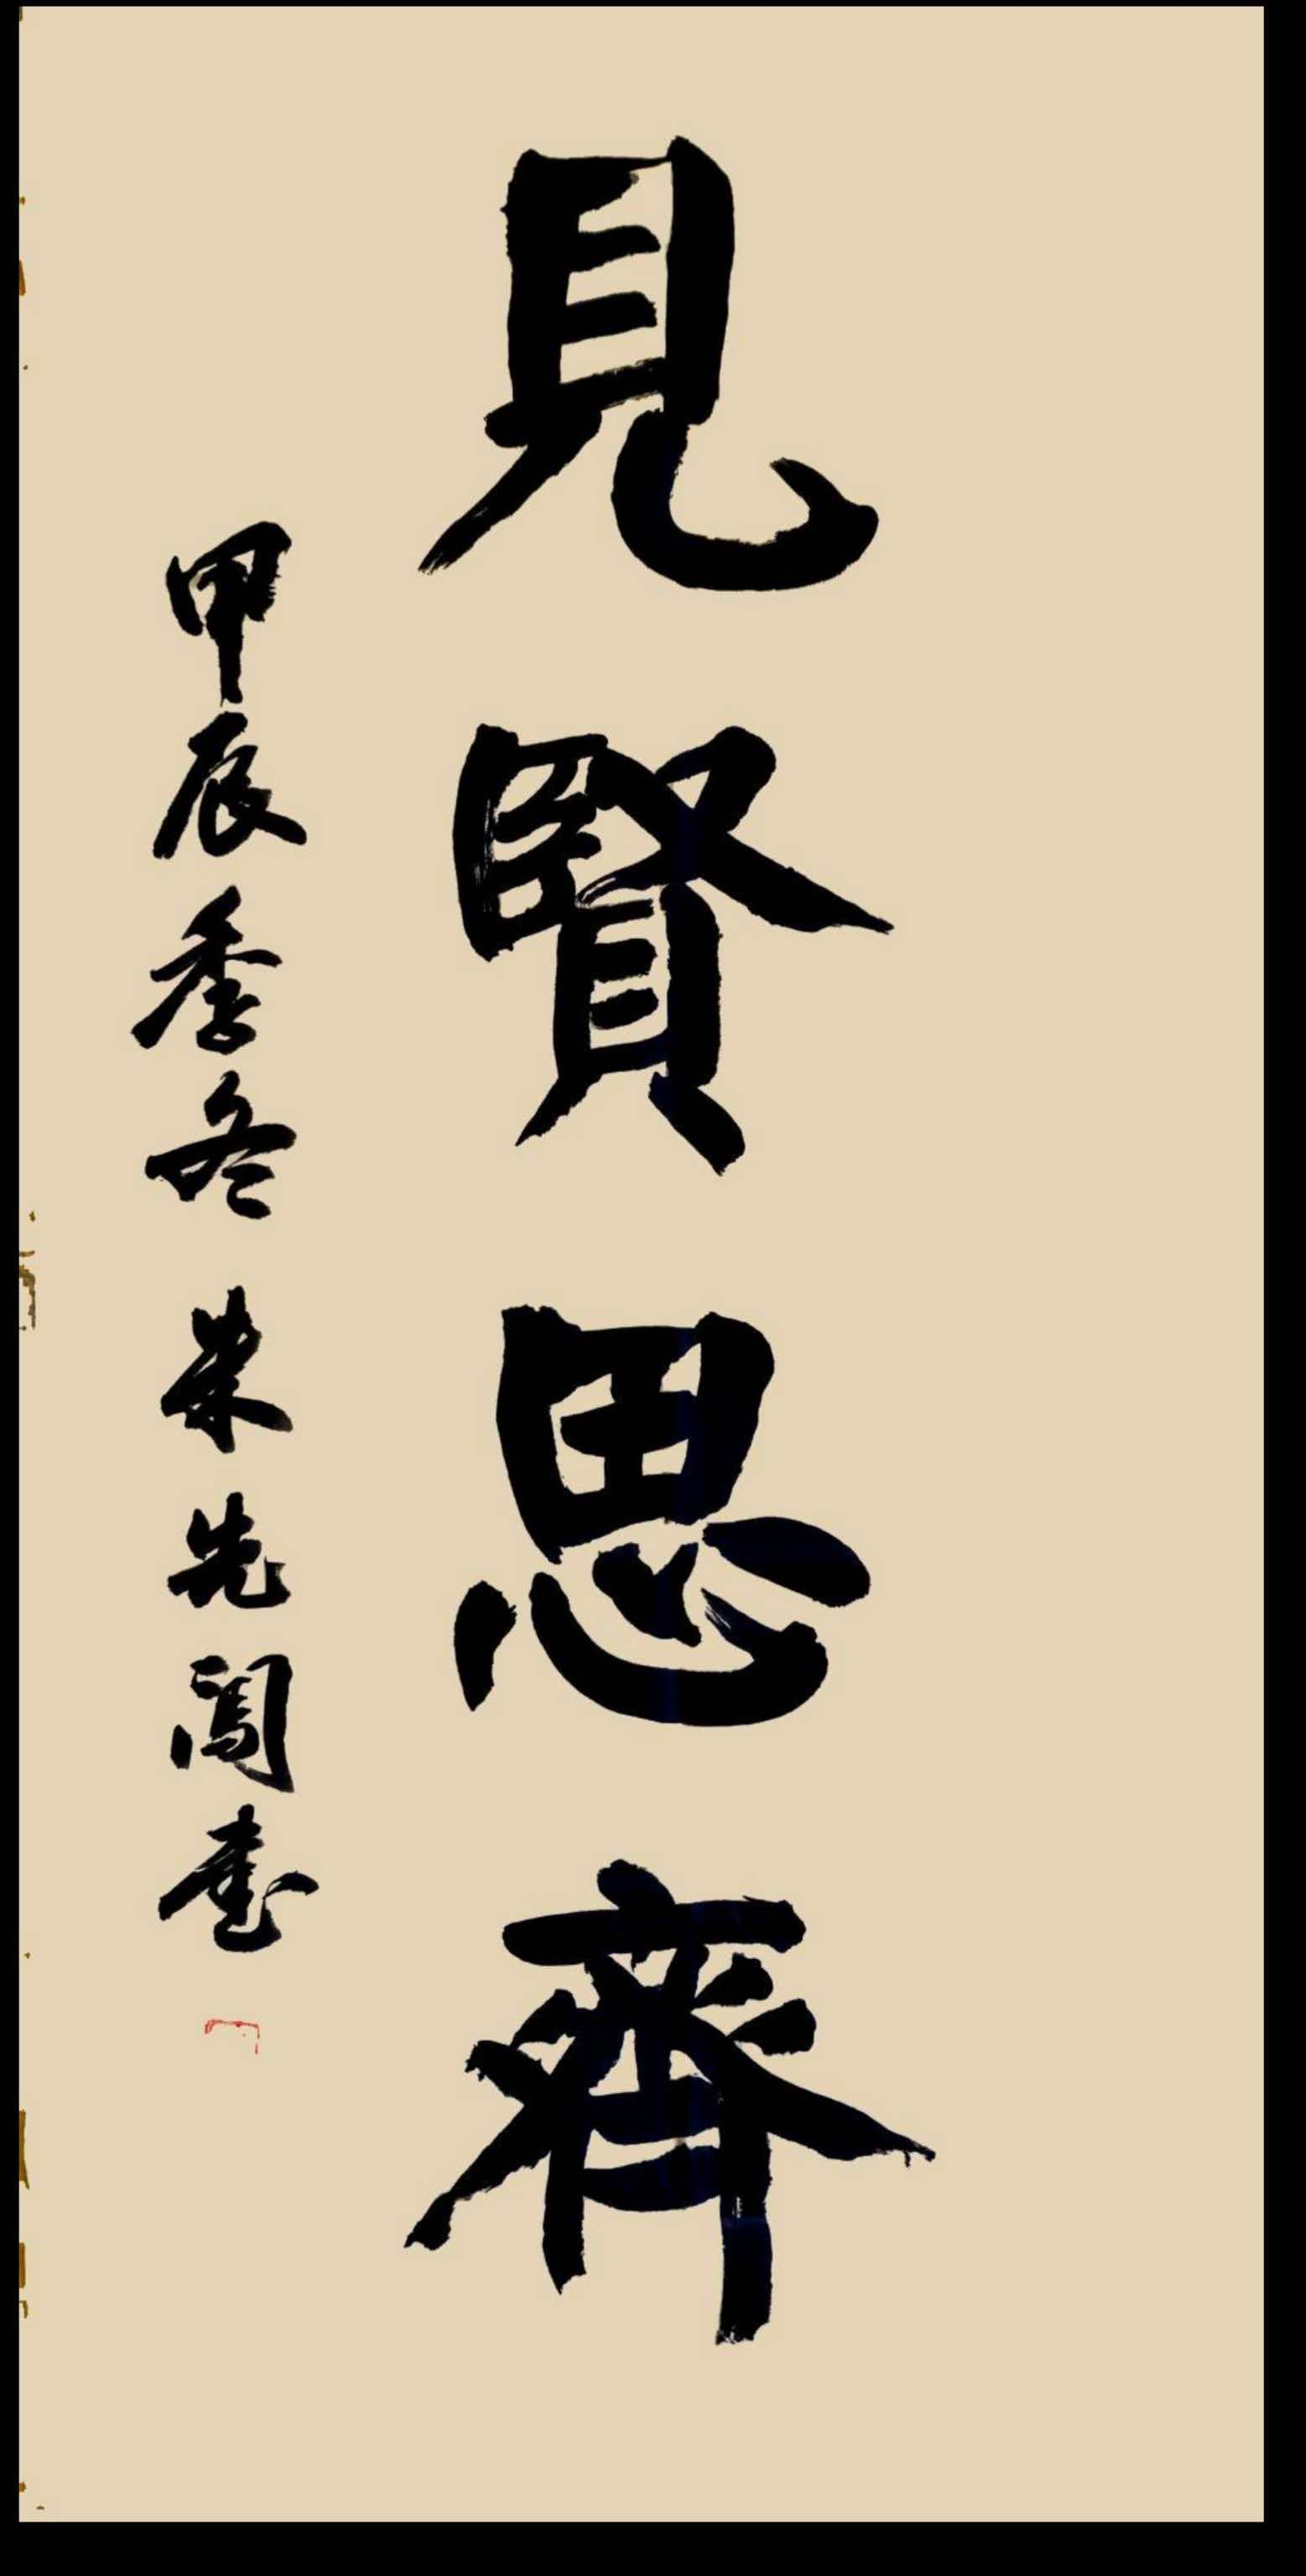 見賢思齊
甲辰季冬 朱先闖書